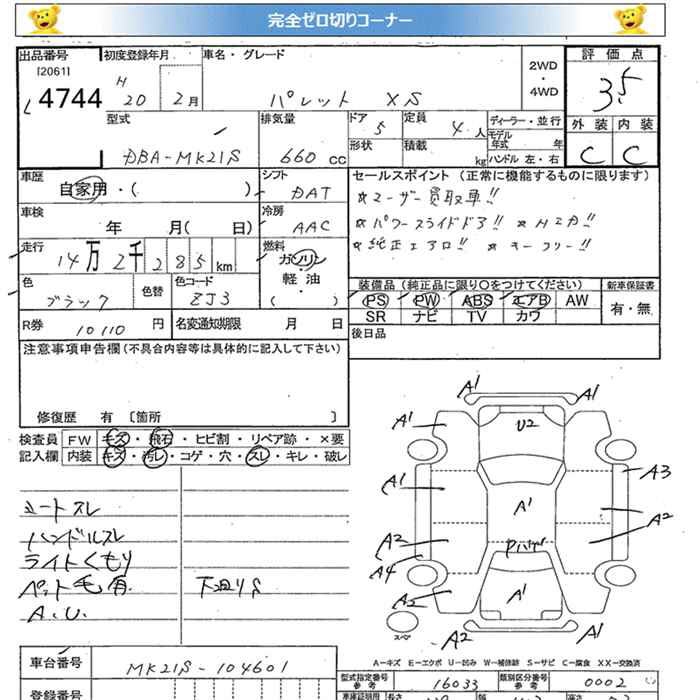 完全ゼロ切りコーナー
出品番号 初度登録年月 車名・グレード 2WD・4WD 評価点
[2061]
4744 H 20 2月 パレット XS 3.5
型式 排気量 ドア 定員 ディーラー・並行 外装 内装
DBA-MK21S 660 cc 5 4 人 モデル年式 年 C C
形状 積載 kg ハンドル 左・右
車歴 シフト セールスポイント (正常に機能するものに限ります)
自家用・( ) DAT ☆ユーザー買取車!!
車検 冷房 ☆パワースライドドア!! ☆HID!!
年 月( 日) AAC ☆純正エアロ!! ☆キーフリー!!
走行 燃料
14万2千285km ガソリン・軽油
( )
色 色替 色コード 装備品 (純正品に限り○をつけてください) 新車保証書
ブラック ZJ3 PS PW ABS エアB AW 有・無
SR ナビ TV カワ
R券 10110 円 名変通知期限 月 日 後日品
注意事項申告欄(不具合内容等は具体的に記入して下さい)
修復歴 有 〔箇所 〕
検査員 FW キズ・飛石・ヒビ割・リペア跡・×要
記入欄 内装 キズ・汚レ・コゲ・穴・スレ・キレ・破レ
シートスレ
ハンドルスレ
ライトくもり
ペット毛有 下廻りS
A.U.
A1 A1
A1 U2
A1 A3
A1 A2
A2 Pハゲ
A4
A2 A1
スペア
A2 A1
A-キズ E-エクボ U-凹み W-補修跡 S-サビ C-腐食 XX-交換済
車台番号 MK21S-104601
型式指定番号 参考 16033 類別区分番号 参考 0002
登録番号 車庫証明用 長さ